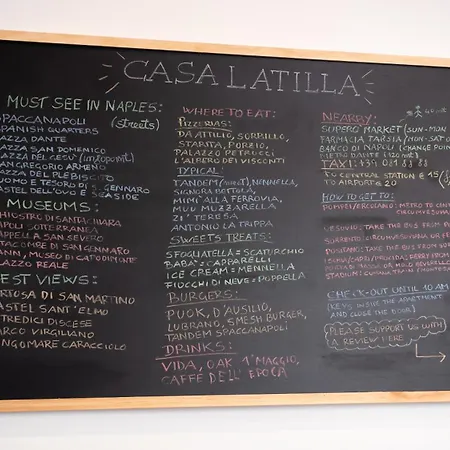 CASA LATILLA
MUST SEE IN NAPLES:
SPACCANAPOLI
SPANISH QUARTERS (streets)
PIAZZA DANTE
PIAZZA SAN DOMENICO
PIAZZA DEL GESU'
SAN GREGORIO ARMENO
PIAZZA DEL PLEBISCITO
DUOMO E TESORO DI S. GENNARO
CASTEL DELL'OVO E SEASIDE
MUSEUMS:
CHIOSTRO DI SANTA CHIARA
NAPOLI SOTTERRANEA
CAPPELLA SAN SEVERO
CATACOMBE DI SAN GENNARO
MANN, MUSEO DI CAPODIMONTE
PALAZZO REALE
BEST VIEWS:
CERTOSA DI SAN MARTINO
CASTEL SANT'ELMO
TREDICI DISCESE
PARCO VIRGILIANO
LUNGOMARE CARACCIOLO
WHERE TO EAT:
PIZZERIAS:
DA ATTILIO, SORBILLO,
STARITA, PORZIO,
PALAZZO PETRUCCI
L'ALBERO DEI VISCONTI
TYPICAL:
TANDEM, NENNELLA,
SIGNORA BETTOLA,
MIMI' ALLA FERROVIA,
MUU MUZZARELLA
ZI' TERESA
ANTONIO LA TRIPPA
SWEETS TREATS:
SFOGLIATELLA = SCATURCHIO
BABA' = CAPPARELLI
ICE CREAM = MENNELLA
FIOCCHI DI NEVE = POPPELLA
BURGERS:
PUOK, D'AUSILIO,
LUBRANO, SMESH BURGER,
TANDEM SPACCANAPOLI
DRINKS:
VIDA, OAK, 1° MAGGIO,
CAFFE DELL'EPOCA
NEARBY:
SUPERO' MARKET (SUN-MON
FARMACIA TARSIA (MON-SAT
BANCO DI NAPOLI (CHANGE POINT
METRO DANTE
TAXI:
TO CENTRAL STATION € 15
TO AIRPORT € 20
HOW TO GET TO:
POMPEI/ERCOLANO: METRO TO
VESUVIO: TAKE THE BUS FROM
SORRENTO: CIRCUMVESUVIANA
TAKE THE BUS FROM
CHECK-OUT UNTIL 10 AM
(KEYS INSIDE THE APARTMENT
AND CLOSE THE DOOR)
PLEASE SUPPORT US WITH
A REVIEW HERE